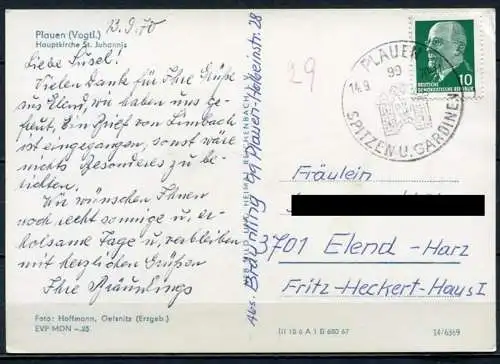 Plauen (Vogtl.)
Hauptkirche St. Johannis
13.9.70
Liebe Susel!
Vielen Dank für Ihre Grüße
aus Elend, wir haben uns ge-
freut, Ein Brief von Limbach
ist eingegangen, sonst wäre
nichts Besonderes zu be-
richten.
Wir wünschen Ihnen
noch recht sonnige u. er-
holsame Tage u. verbleiben
mit herzlichen Grüßen
Ihre Bräunlings
Foto: Hoffmann, Oelsnitz (Erzgeb.)
EVP MDN -.25
BILD UND HEIMAT REICHENBACH
Abs. Bräunling 99 Plauen, Holbeinstr. 28
29
PLAUEN
99
14.9
SPITZEN U. GARDINEN
10
DEUTSCHE
DEMOKRATISCHE REPUBLIK
Fräulein
3701 Elend-Harz
Fritz-Heckert-Haus I
III 18 6 A 1 B 680 67
14/6369